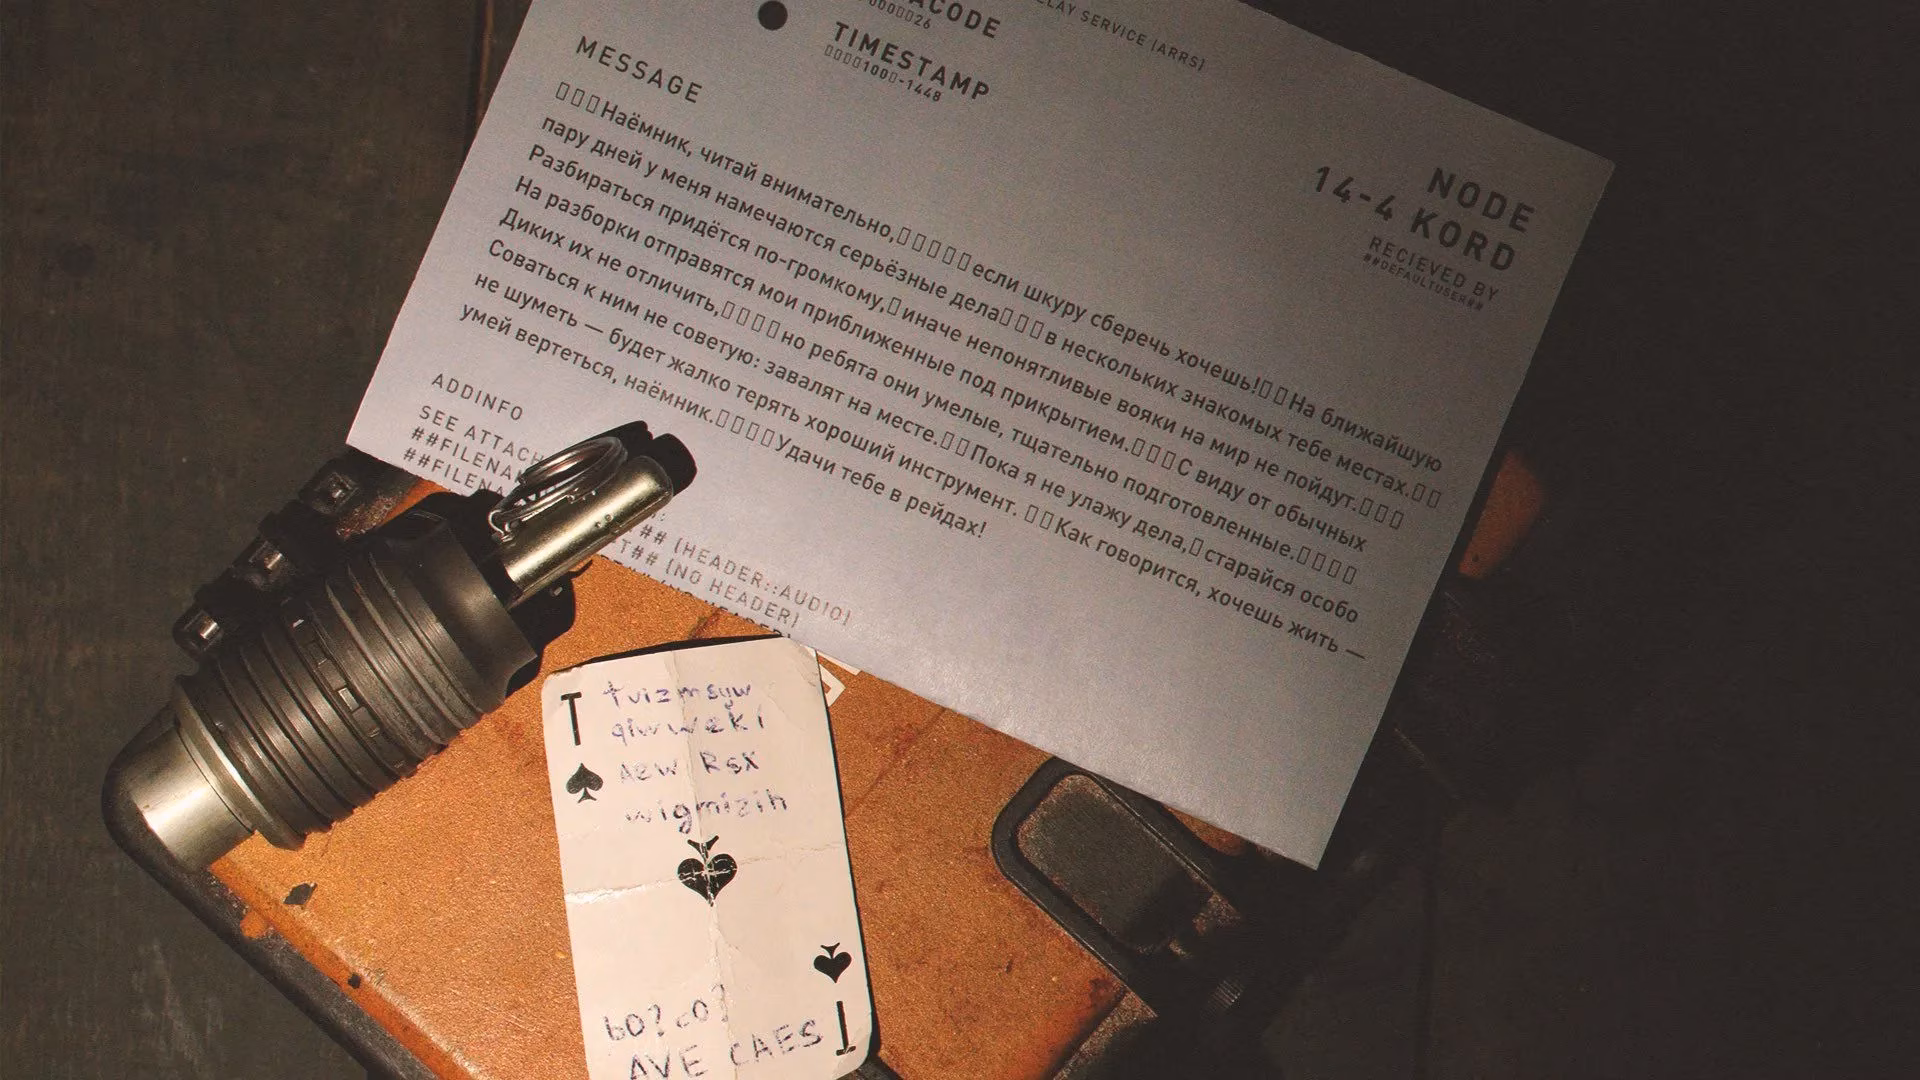 LAY SERVICE (ARRS)
ACODE
▯000▯▯26
TIMESTAMP
▯▯▯▯100▯-1448
MESSAGE
NODE
14-4 KORD
RECIEVED BY
##DEFAULTUSER##
▯▯▯Наёмник, читай внимательно,▯▯▯▯▯если шкуру сберечь хочешь!▯▯На ближайшую
пару дней у меня намечаются серьёзные дела▯▯▯в нескольких знакомых тебе местах.▯▯
Разбираться придётся по-громкому,▯иначе непонятливые вояки на мир не пойдут.▯▯▯
На разборки отправятся мои приближенные под прикрытием.▯▯▯С виду от обычных
Диких их не отличить,▯▯▯▯но ребята они умелые, тщательно подготовленные.▯▯▯▯
Соваться к ним не советую: завалят на месте.▯▯Пока я не улажу дела,▯старайся особо
не шуметь — будет жалко терять хороший инструмент. ▯▯Как говорится, хочешь жить —
умей вертеться, наёмник.▯▯▯▯Удачи тебе в рейдах!
ADDINFO
SEE ATTACH
##FILENA
##FILENA
## (HEADER::AUDIO)
T## (NO HEADER)
HEADER)
T
tvizmsyw
qiwweki
Azw Rsx
wigmizih
bO? cO?
AVE CAES
T